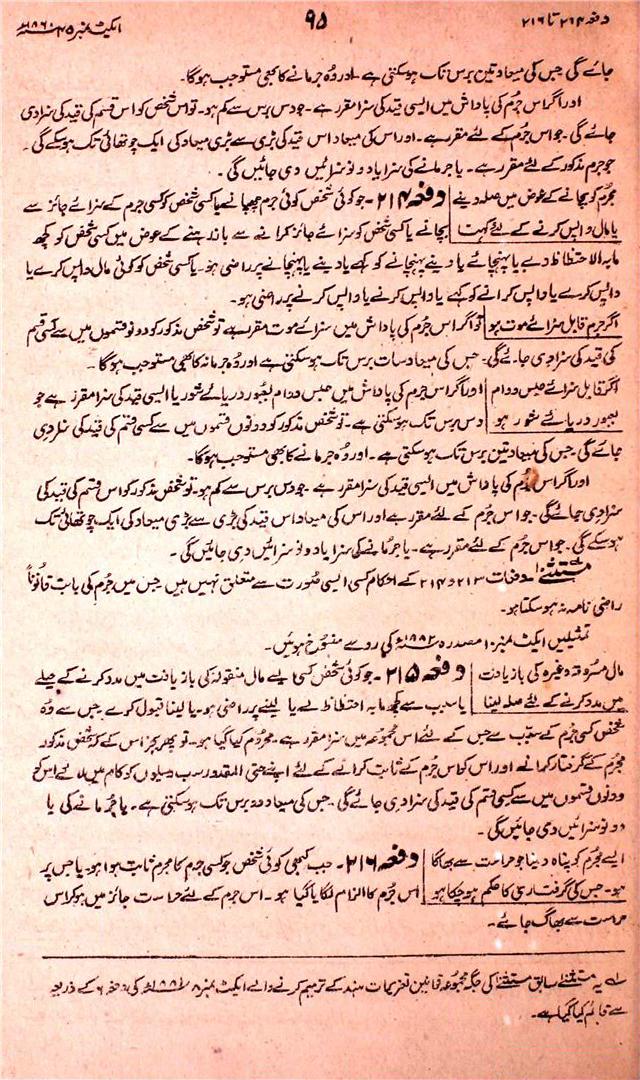 دفعہ ۲۱۴ تا ۲۱۶
۹۵
ایکٹ نمبر ۴۵ سنہ ۱۸۶۰ء
جائے گی جس کی میعاد تین برس تک ہوسکتی ہے۔ اور وُہ جرمانے کا بھی مستوجب ہوگا۔
اور اگر اس جُرم کی پاداش میں ایسی قید کی سزا مقرر ہے۔ جو دس برس سے کم ہو۔ تو اس شخص کو اس قسم کی قید کی سزا دی
جائے گی۔ جو اس جُرم کے لئے مقرر ہے۔ اور اس کی میعاد اس قید کی بڑی سے بڑی میعاد کی ایک چوتھائی تک ہوسکے گی۔
جو جرم مذکور کے لئے مقرر ہے۔ یا جرمانے کی سزا یا دونو سزائیں دی جائیں گی۔
مجرم کو بچانے کے عوض میں صلہ دینے
یا مال واپس کرنے کے لئے کہنا
دفعہ ۲۱۴۔ جو کوئی شخص کوئی جرم چھپانے یا کسی شخص کو کسی جرم کے سزائے جائز سے
بچانے یا کسی شخص کو سزائے جائز کرانے سے باز رہنے کے عوض میں کسی شخص کو کچھ
مابہ الاحتظاظ دے یا پہنچائے یا دینے پہنچانے کو کہے یا دینے یا پہنچانے پر راضی ہو۔ یا کسی شخص کو کوئی مال واپس کرے یا
واپس کرے یا واپس کرانے کو کہے یا واپس کرنے یا واپس کرنے پر راضی ہو۔
اگر جرم قابل سزائے موت ہو
تو اگر اس جُرم کی پاداش میں سزائے موت مقرر ہے تو شخص مذکور کو دونو قسموں میں سے کسی قسم
کی قید کی سزا دی جائے گی۔ جس کی میعاد سات برس تک ہوسکتی ہے اور وُہ جرمانہ کا بھی مستوجب ہوگا۔
اگر قابل سزائے حبس دوام
بعبور دریائے شور ہو
اور اگر اس جرم کی پاداش میں حبس دوام بعبور دریائے شور یا ایسی قید کی سزا مقرر ہے جو
دس برس تک ہوسکتی ہے۔ تو شخص مذکور کو دونوں قسموں میں سے کسی قسم کی قید کی سزا دی
جائے گی۔ جس کی میعاد تین برس تک ہوسکتی ہے۔ اور وُہ جرمانے کا بھی مستوجب ہوگا۔
اور اگر اس جُرم کی پاداش میں ایسی قید کی سزا مقرر ہے۔ جو دس برس سے کم ہو۔ تو شخص مذکور کو اس قسم کی قید کی
سزا دی جائے گی۔ جو اس جرم کے لئے مقرر ہے اور اس کی میعاد اس قید کی بڑی سے بڑی میعاد کی ایک چوتھائی تک
ہوسکے گی۔ جو اس جُرم کے لئے مقرر ہے۔ یا جرمانے کی سزا یا دونو سزائیں دی جائیں گی۔
مستثنیٰ۔ دفعات ۲۱۳ و ۲۱۴ کے احکام کسی ایسی صُورت سے متعلق نہیں ہیں جس میں جرم کی بابت قانوناً
راضی نامہ نہ ہوسکتا ہو۔
تمثیلیں ایکٹ نمبر ۱۰ مصدرہ سنہ ۱۸۸۲ء کی رو سے منسُوخ ہوئیں۔
مال مسرُوقہ وغیرہ کی بازیافت
میں مدد کرنے کے لئے صلہ لینا
دفعہ ۲۱۵۔ جو کوئی شخص کسی ایسے مال منقولہ کی بازیافت میں مدد کرنے کے حیلے
یا سبب سے کچھ مابہ احتظاظ لے یا لینے پر راضی ہو۔ یا لینا قبول کرے جس سے وُہ
شخص کسی جُرم کے سبب سے جس کے لئے اس مجُموعہ میں سزا مقرر ہے۔ محرُوم کیا گیا ہو۔ تو بجُز اس کے کہ شخص مذکور
مجُرم کے گرفتار کرانے اور اس کو اس جُرم کے ثابت کرانے کے لئے اپنے حتی المقدور سب وسیلوں کو کام میں لائے اس کو
دونوں قسموں میں سے کسی قسم کی قید کی سزا دی جائے گی۔ جس کی میعاد دو برس تک ہوسکتی ہے۔ یا جُرمانے کی یا
دونو سزائیں دی جائیں گی۔
ایسے مجُرم کو پناہ دینا جو حراست سے بھاگا
ہو۔ جس کی گرفتاری کا حکم ہو چکا ہو
دفعہ ۲۱۶۔ جب کبھی کوئی شخص جو کسی جرم کا مجرم ثابت ہوا ہو۔ یا جس پر
اس جُرم کا الزام لگایا گیا ہو۔ اس جرم کے لئے حراست جائز میں ہوکر اس
حراست سے بھاگ جائے۔
یہ مستثنیٰ سابق مستثنیٰ کی جگہ مجموعہ قوانین تعزیرات ہند کے ترمیم کرنے والے ایکٹ نمبر ۸ سنہ ۱۸۸۲ء کی دفعہ ۶ کے ذریعہ
سے قائم کیا گیا ہے۔